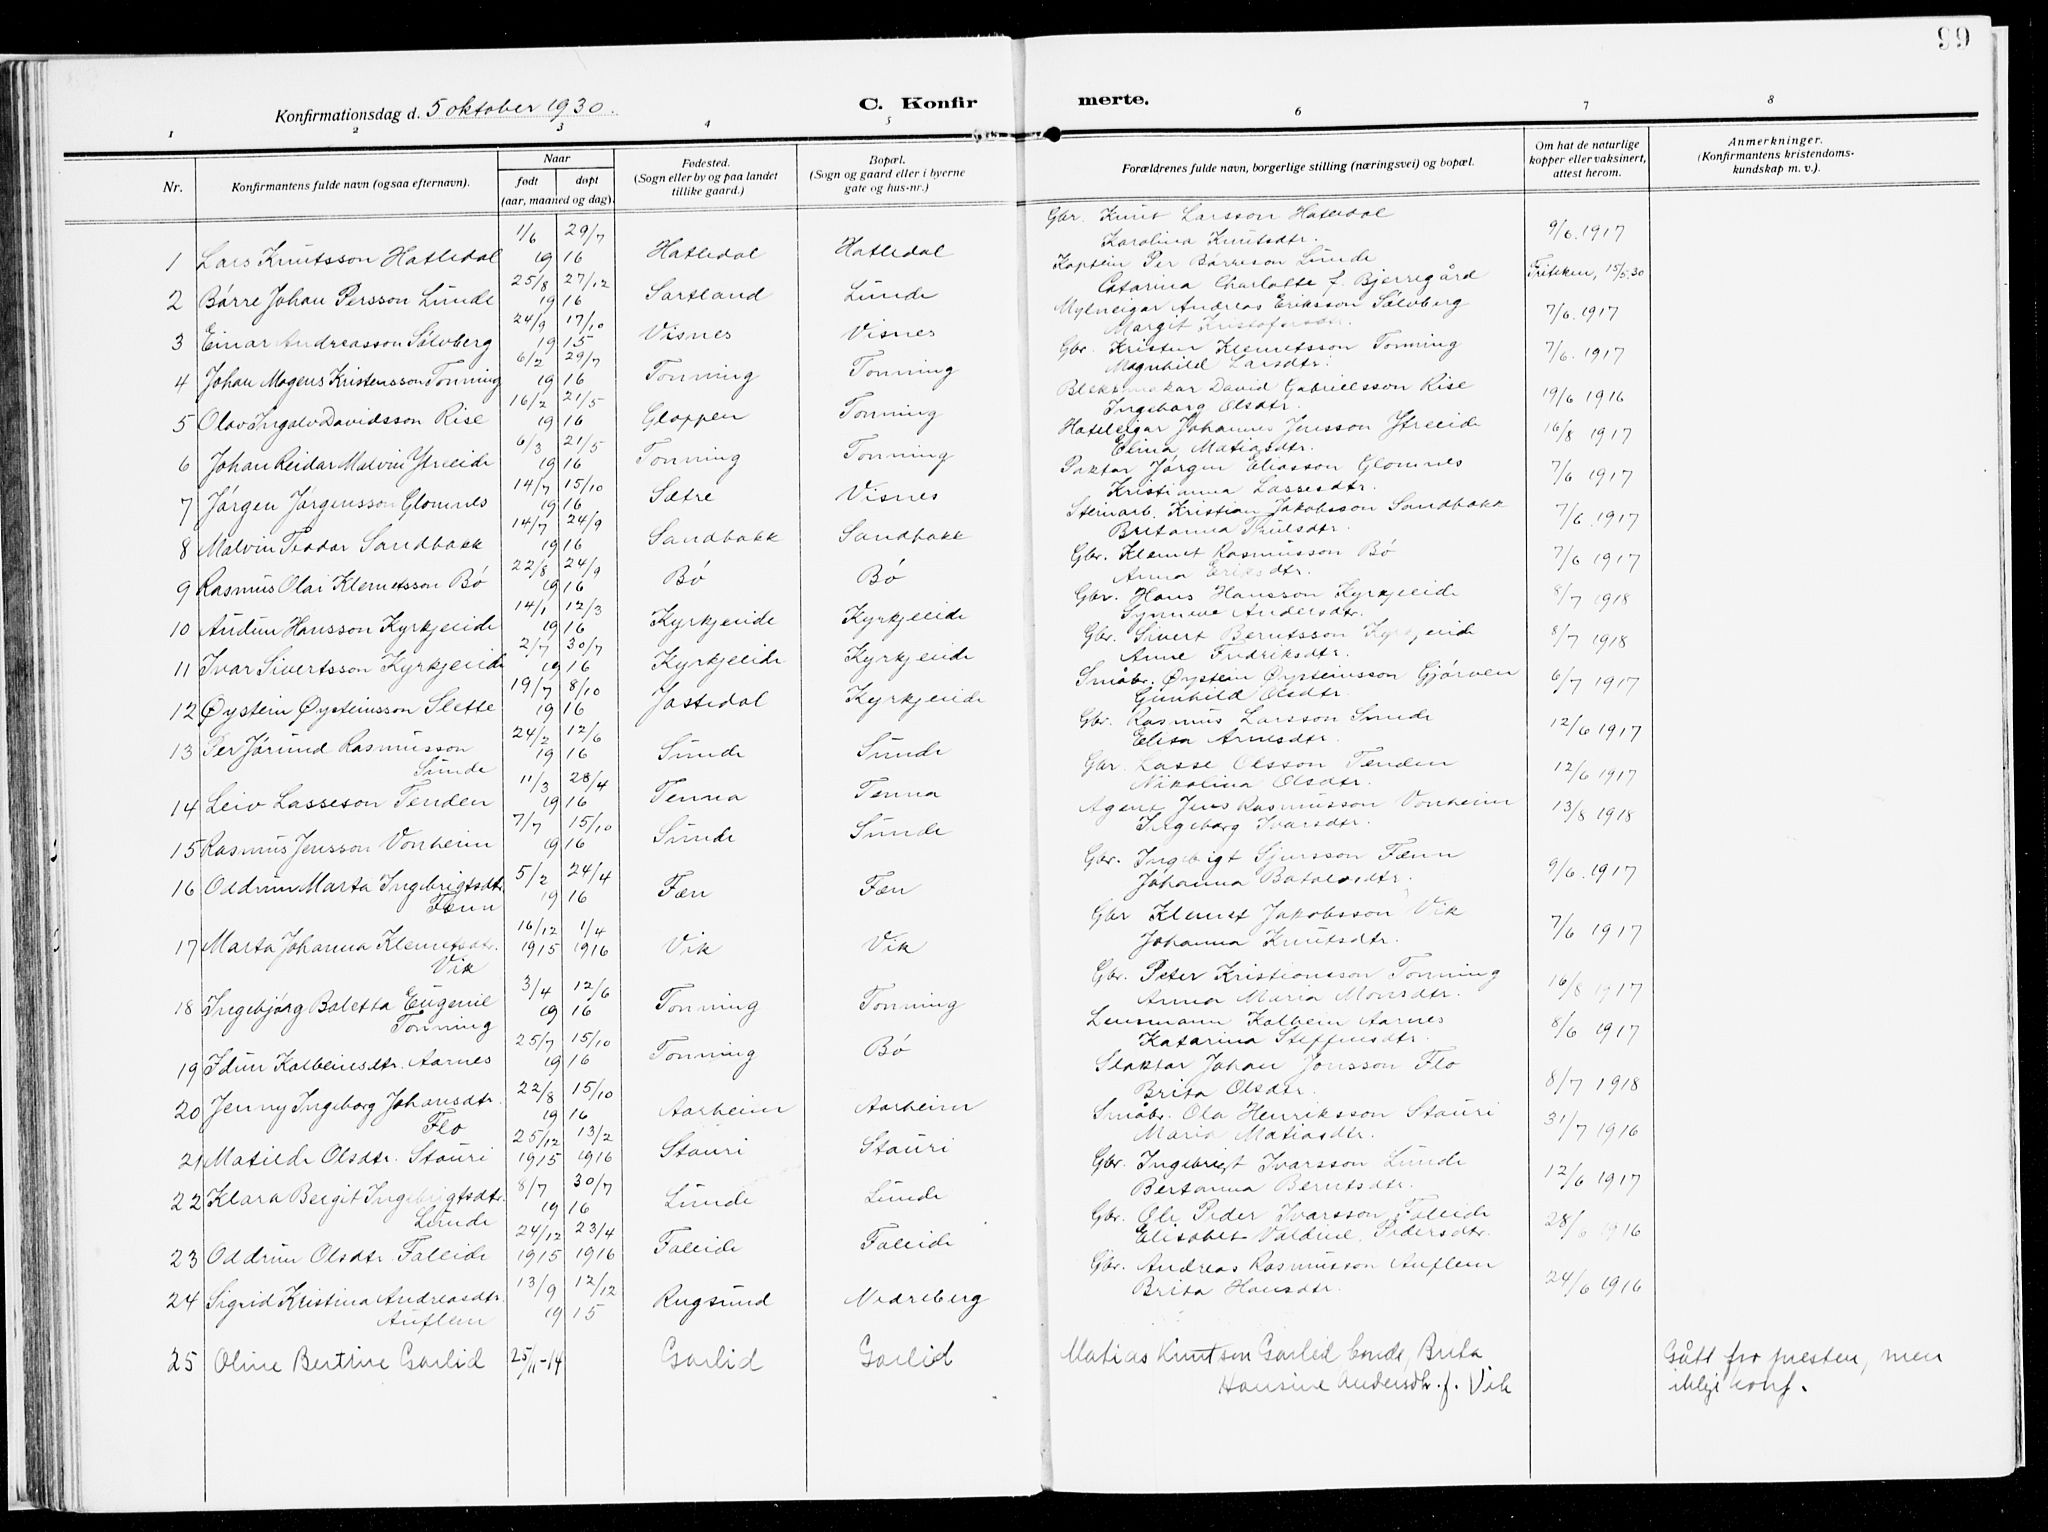 99
Konfirmationsdag d. 5 oktober 1930.
C. Konfirmerte.
1 2 3 4 5 6 7 8
Nr.
Konfirmantens fulde navn (ogsaa efternavn).
Naar
født
døpt
(aar, maaned og dag).
Fødested.
(Sogn eller by og paa landet
tillike gaard.)
Bopæl.
(Sogn og gaard eller i byerne
gate og hus-nr.)
Forældrenes fulde navn, borgerlige stilling (næringsvei) og bopæl.
Om hat de naturlige
kopper eller vaksinert,
attest herom.
Anmerkninger.
(Konfirmantens kristendoms-
kundskap m. v.).
1 Lars Knutsson Hatledal 1/6 29/7 1916 Hatledal Hatledal Gbr. Knut Larsson Hatledal 9/6 1917
Karolina Knutsdtr.
2 Børre Johan Persson Lunde 25/8 27/12 1916 Sartland Lunde Kaptein Per Børreson Lunde Friteken, 15/5.30
Catarina Charlotte f. Bjerregård
3 Einar Andreasson Sølvberg 24/9 17/10 1915 Visnes Visnes Mylneigar Andreas Eriksson Sølvberg 7/6 1917
Margit Kristofersdtr.
4 Johan Magnus Kristensson Tonning 6/2 29/7 1916 Tonning Tonning Gbr. Kristen Klemetsson Tonning 7/6. 1917
Magnhild Larsdtr.
5 Olav Ingolv Davidsson Rise 16/2 21/5 1916 Gloppen Tonning Blekkmakar David Gabrielsson Rise 19/6 1916
Ingeborg Olsdtr.
6 Johan Reidar Malvin Ytreeide 6/3 21/5 1916 Tonning Tonning Hotelleigar Johannes Jensson Ytreeide 16/8 1917
Elina Matiasdtr.
7 Jørgen Jørgensson Glomnes 14/7 15/10 1916 Sætre Visnes Paktar Jørgen Eliasson Glomnes 7/6 1917
Kristianna Lassesdtr.
8 Malvin Teodor Sandbakk 14/7 24/9 1916 Sandbakk Sandbakk Steinarb. Kristian Jakobsson Sandbakk 7/6.1917
Britanna Trulsdtr.
9 Rasmus Olai Klemetsson Bø 22/8 24/9 1916 Bø Bø Gbr. Klemet Rasmusson Bø 7/6 1917
Anna Eriksdtr.
10 Audun Hansson Kyrkjeeide 14/1 12/3 1916 Kyrkjeeide Kyrkjeeide Gbr. Hans Hansson Kyrkjeeide 8/7 1918
Synneve Andersdtr.
11 Ivar Sivertsson Kyrkjeeide 2/7 30/7 1916 Kyrkjeeide Kyrkjeeide Gbr. Sivert Berntsson Kyrkjeeide 8/7 1918
Anne Fredriksdtr.
12 Øystein Øysteinsson Slette 19/7 8/10 1916 Jostedal Kyrkjeeide Småbr. Øystein Øysteinsson Gjørven 6/7 1917
Gunhild Olsdtr.
13 Per Jørund Rasmusson Sunde 24/2 12/6 1916 Sunde Sunde Gbr. Rasmus Larsson Sunde 12/6 1917
Elisa Arnesdtr.
14 Leiv Lasseson Tenden 11/3 28/4 1916 Tenna Tenna Gbr. Lasse Olsson Tenden 12/6 1917
Nikolina Olsdtr.
15 Rasmus Jensson Vonheim 7/7 15/10 1916 Sunde Sunde Agent Jens Rasmusson Vonheim 13/8 1918
Ingeborg Ivarsdtr.
16 Oddrun Marta Ingebrigtsdtr. Fænn 5/2 24/4 1916 Fæn Fæn Gbr. Ingebrigt Sjursson Fænn 9/6. 1917
Johanna Botolvsdtr.
17 Marta Johanna Klemetsdtr. Vik 16/12 1915 1/4 1916 Vik Vik Gbr Klemet Jakobsson Vik 7/6 1917
Johanna Knutsdtr.
18 Ingebjørg Baletta Eugenie Tonning 3/4 12/6 1916 Tonning Tonning Gbr. Peter Kristiansson Tonning 16/8 1917
Anna Maria Monsdtr.
19 Idun Kolbeinsdtr. Aarnes 25/7 15/10 1916 Tonning Bø Lensmann Kolbein Aarnes 8/6 1917
Katarina Steffensdtr.
20 Jenny Ingeborg Johansdtr. Flo 22/8 15/10 1916 Aarheim Aarheim Slaktar Johan Jonsson Flo 8/7 1918
Brita Olsdtr.
21 Matilde Olsdtr. Stauri 25/12 1915 13/2 1916 Stauri Stauri Småbr. Ola Henriksson Stauri 31/7 1916
Maria Matiasdtr.
22 Klara Bergit Ingebrigtsdtr. Lunde 8/7 30/7 1916 Lunde Lunde Gbr. Ingebrigt Ivarsson Lunde 12/6 1917
Bertanna Berntsdtr.
23 Oddrun Olsdtr. Faleide 24/12 1915 23/4 1916 Faleide Faleide Gbr. Ole Peder Ivarsson Faleide 28/6 1916
Elisabet Valdine Pedersdtr.
24 Sigrid Kristina Andreasdtr. Auflem 13/9 12/12 1915 Rugsund Nedreberg Gbr. Andreas Rasmusson Auflem 24/6 1916
Brita Hansdtr.
25 Oline Bertine Gorlid 25/11-14 Gorlid Gorlid Matias Knutson Gorlid bonde, Brita Gått fro presten, men
Hansine Andersdtr. f. Vik ikkje konf.